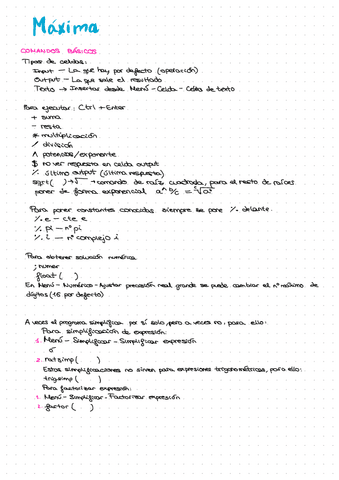 Máxima
COMANDOS BÁSICOS
Tipos de celdas:
Input — La que hay por defecto (operación)
Output — La que sale el resultado
Texto → Insertar desde Menú - Celda - Celda de texto
Para ejecutar: Ctrl + Enter
+ suma
- resta
* multiplicación
/ división
^ potencias/exponente
$ no ver respuesta en celda output
% último output (última respuesta)
sqrt( ) → √ → comando de raíz cuadrada, para el resto de raíces
poner de forma exponencial a^b/c = ᶜ√aᵇ
Para poner constantes conocidas siempre se pone % delante.
% e - cte e
% pi - nº pi
% i - nº complejo i
Para obtener solución numérica
; numer
float ( )
En Menú - Numérico - Ajustar precisión real grande se puede cambiar el nº máximo de
dígitos (16 por defecto)
A veces el programa simplifica por sí solo, pero a veces no, para ello:
Para simplificación de expresión:
1. Menú - Simplificar - Simplificar expresión
o
2. ratsimp ( )
Estas simplificaciones no sirven para expresiones trigonométricas, para ello:
trigsimp ( )
Para factorizar expresión:
1. Menú - Simplificar - Factorizar expresión
2. factor ( )